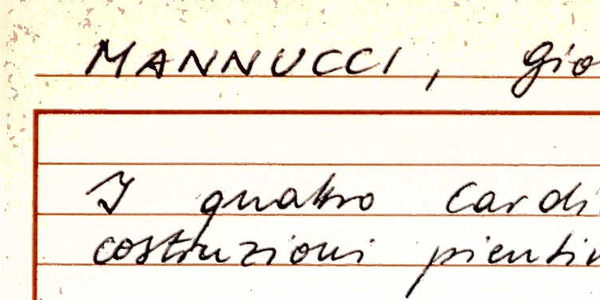 MANNUCCI, Gio
I quattro cardi
costruzioni pientin